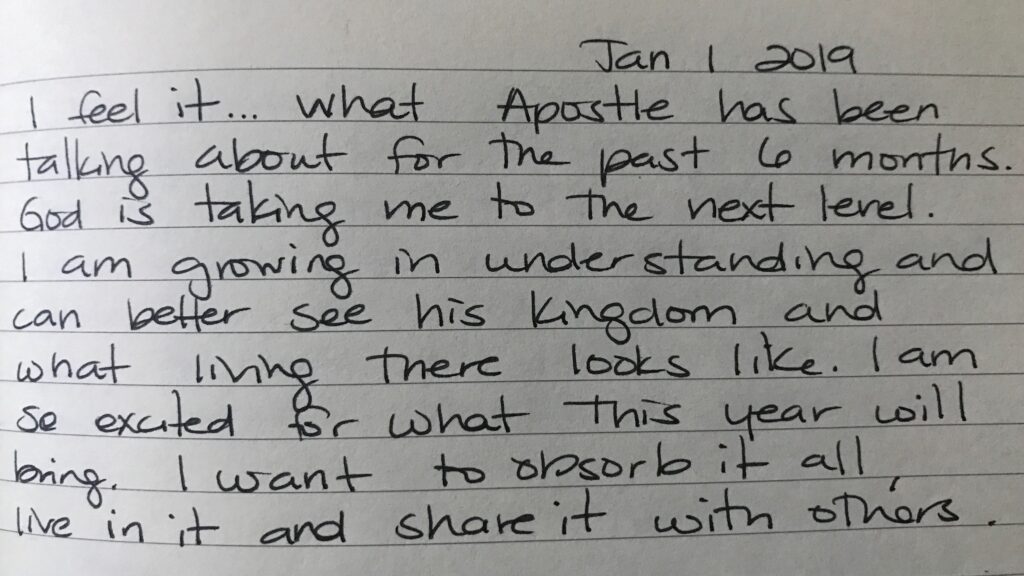 Jan 1 2019
I feel it... what Apostle has been
talking about for the past 6 months.
God is taking me to the next level.
I am growing in understanding and
can better see his Kingdom and
what living there looks like. I am
so excited for what this year will
bring. I want to absorb it all
live in it and share it with others.